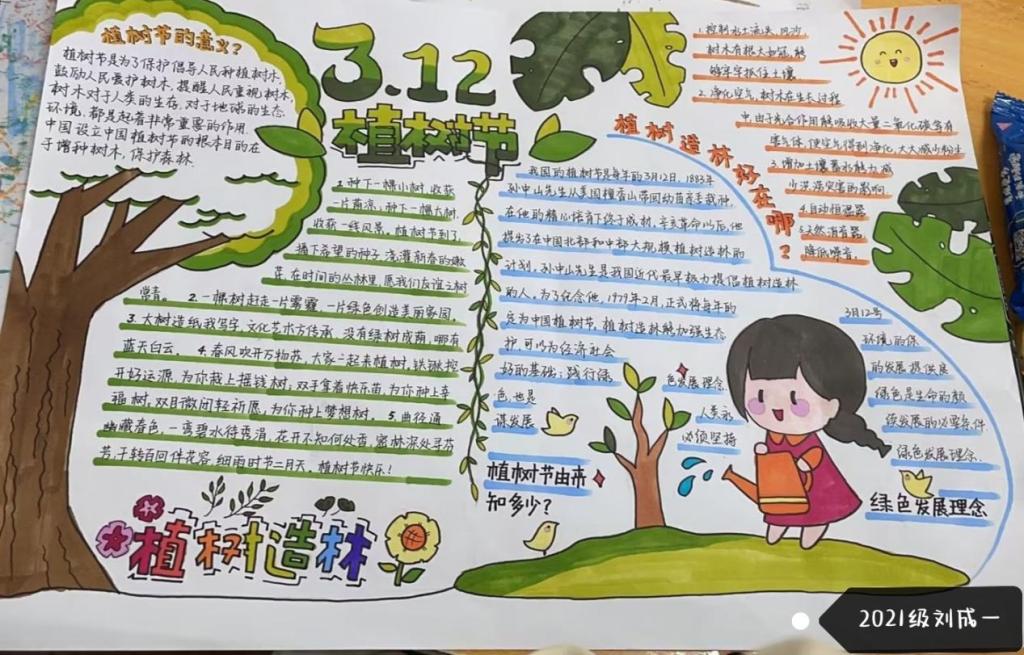 植树节的意义?
植树节是为了保护倡导人民种植树木,
鼓励人民爱护树木,提醒人民重视树木,
树木对于人类的生存,对于地球的生态
环境,都是起着非常重要的作用.
中国设立中国植树节的根本目的在
于增种树木,保护森林.
3.12
植树节
1.种下一棵小树,收获
一片荫凉,种下一棵大树.
收获一线风景,植树节到了,
播下希望的种子,浇灌新春的嫩
芽,在时间的丛林里,愿我们友谊之树
常青。 2.一棵树赶走一片雾霾,一片绿色创造美丽家园,
3.大树造纸我写字,文化艺术方传承,没有绿树成荫,哪有
蓝天白云。 4.春风吹开万物苏,大家一起来植树,铁锹挖
开好运源,为你栽上摇钱树,双手拿着快乐苗,为你种上幸
福树,双目微闭轻祈愿,为你种上梦想树。 5.曲径通
幽藏春色,一湾碧水待秀涓,花开不知何处香,密林深处寻芬
芳,千转百回伴花容,细雨时节二月天,植树节快乐!
植树造林
我国的植树节是每年的3月12日,1883年
孙中山先生从美国檀香山带回幼苗亲手栽种,
在他的精心培育下终于成材,辛亥革命以后,他
提出了在中国北部和中部大规模植树造林的
计划,孙中山先生是我国近代最早极力提倡植树造林
的人,为了纪念他,1979年2月,正式将每年的
3月12号
定为中国植树节,植树造林能加强生态
环境的保
护,可以为经济社会
的发展提供良
好的基础;践行绿
色发展理念,
绿色是生命的颜
色,也是
人类永
续发展的必要条件
谋发展
必须坚持
绿色发展理念.
植树节由来
知多少?
绿色发展理念
植树造林好在哪?
1.控制水土流失,风沙
树木有根大如冠,能
够牢牢抓住土壤
2.净化空气,树木在生长过程
中,由于光合作用能吸收大量二氧化碳等有
害气体,使空气得到净化,大大减少粉尘
3.增加土壤蓄水能力,减
少洪涝灾害的影响
4.自动恒温器
5.天然消音器
降低噪音.
2021级刘成一